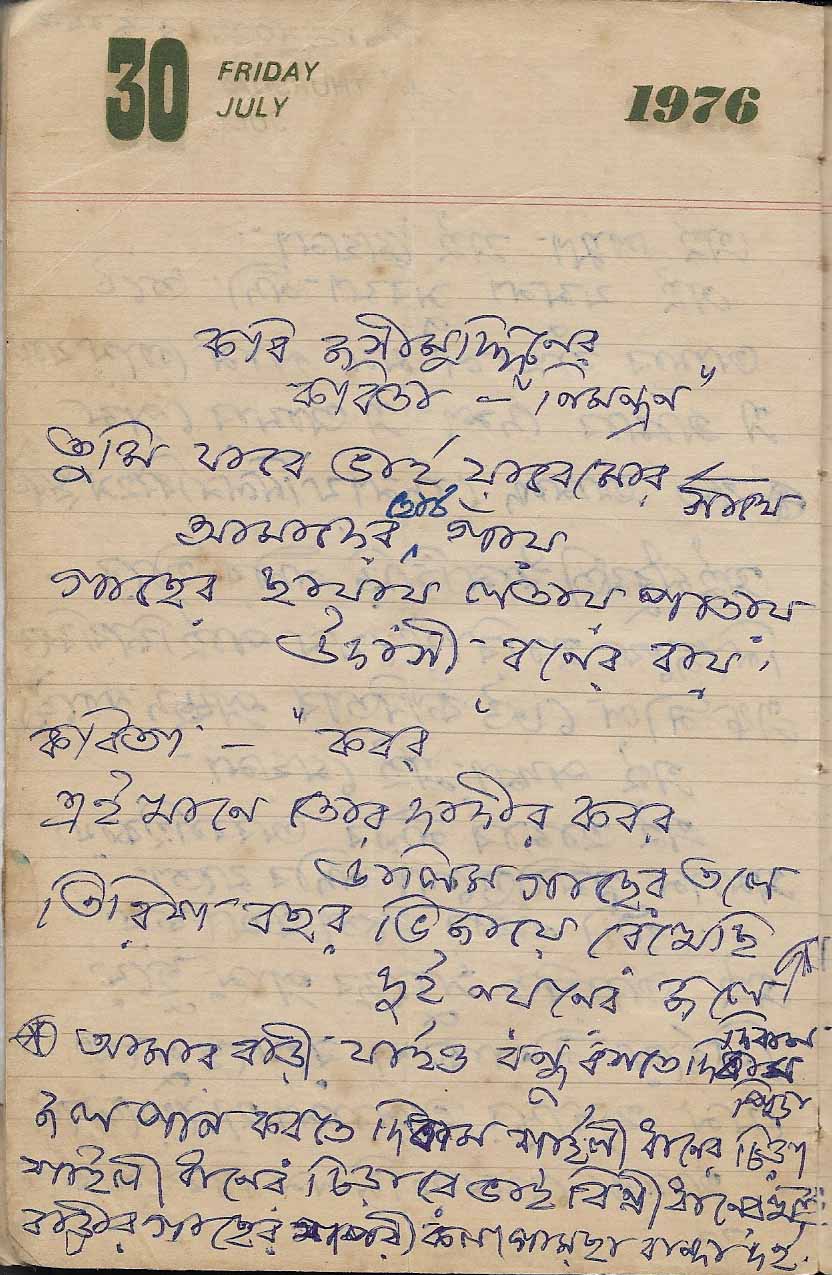 30 FRIDAY JULY 1976
কবি জসীমুদ্দিনের
কবিতা - "নিমন্ত্রণ"
তুমি যাবে ভাই যাবে মোর সাথে
আমাদের ছোট গাঁয়
গাছের ছায়ায় লতায় পাতায়
উদাসী বনের বায়।
কবিতা - "কবর"
এইখানে তোর দাদীর কবর
ডালিম গাছের তলে
তিরিশ বছর ভিজায়ে রেখেছি
দুই নয়নের জলে
আমার বাড়ী যাইও বন্ধু বসতে দিবাম পিড়া
জল পান করতে দিবাম শাইলী ধানের চিড়া
শাইলী ধানের চিড়ারে ভাই বিন্নী ধানের খই
বাড়ীর গাছের কলা গামছা বান্দা দই।